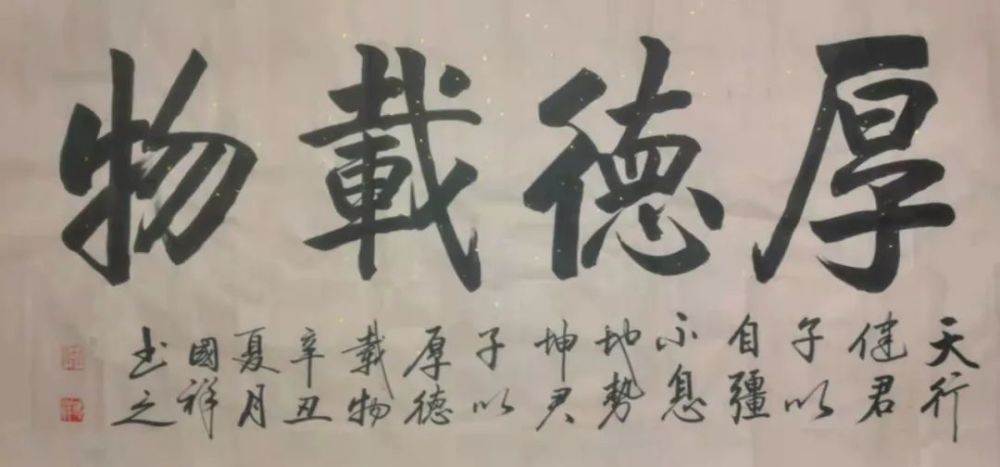 厚德載物
天行
健君
子以
自彊
不息
地勢
坤君
子以
厚德
載物
辛丑
夏月
國祥
书之